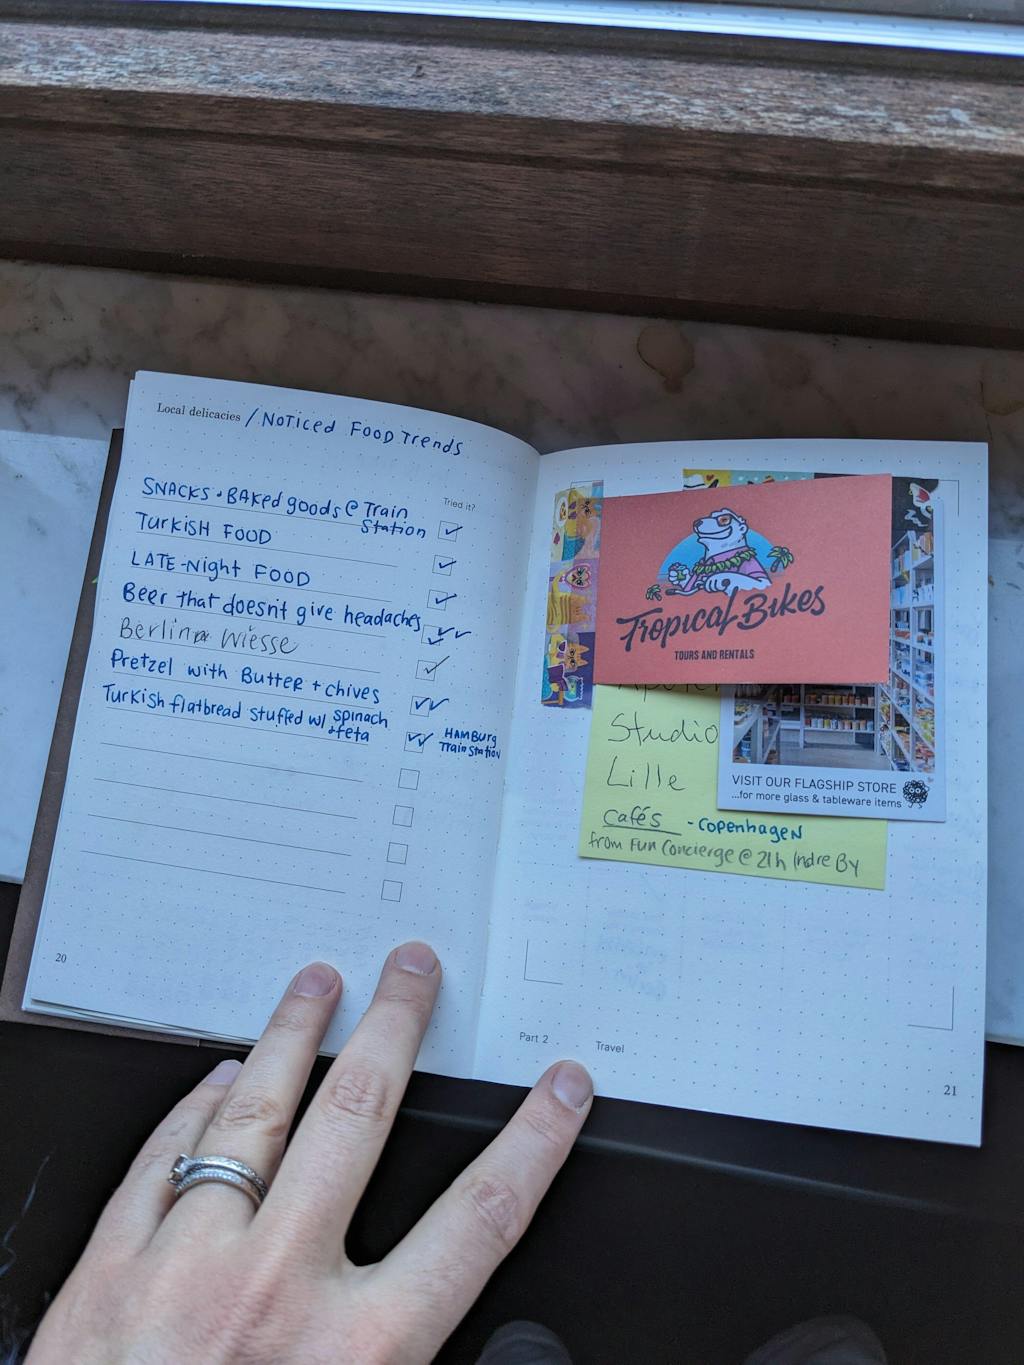 Local delicacies / Noticed Food Trends
Tried it?
SNACKS · BAKed goods @ Train
Station
Turkish FOOD
LATE-Night FOOD
Beer that doesn't give headaches
Berliner Wiesse
Pretzel with Butter + chives
Turkish flatbread stuffed w/ spinach
+ feta
HAMBURG
Train Station
20
Tropical Bikes
TOURS AND RENTALS
Studio
Lille
cafés - Copenhagen
from Fun Concierge @ 21h Indre By
VISIT OUR FLAGSHIP STORE
...for more glass & tableware items
Part 2
Travel
21